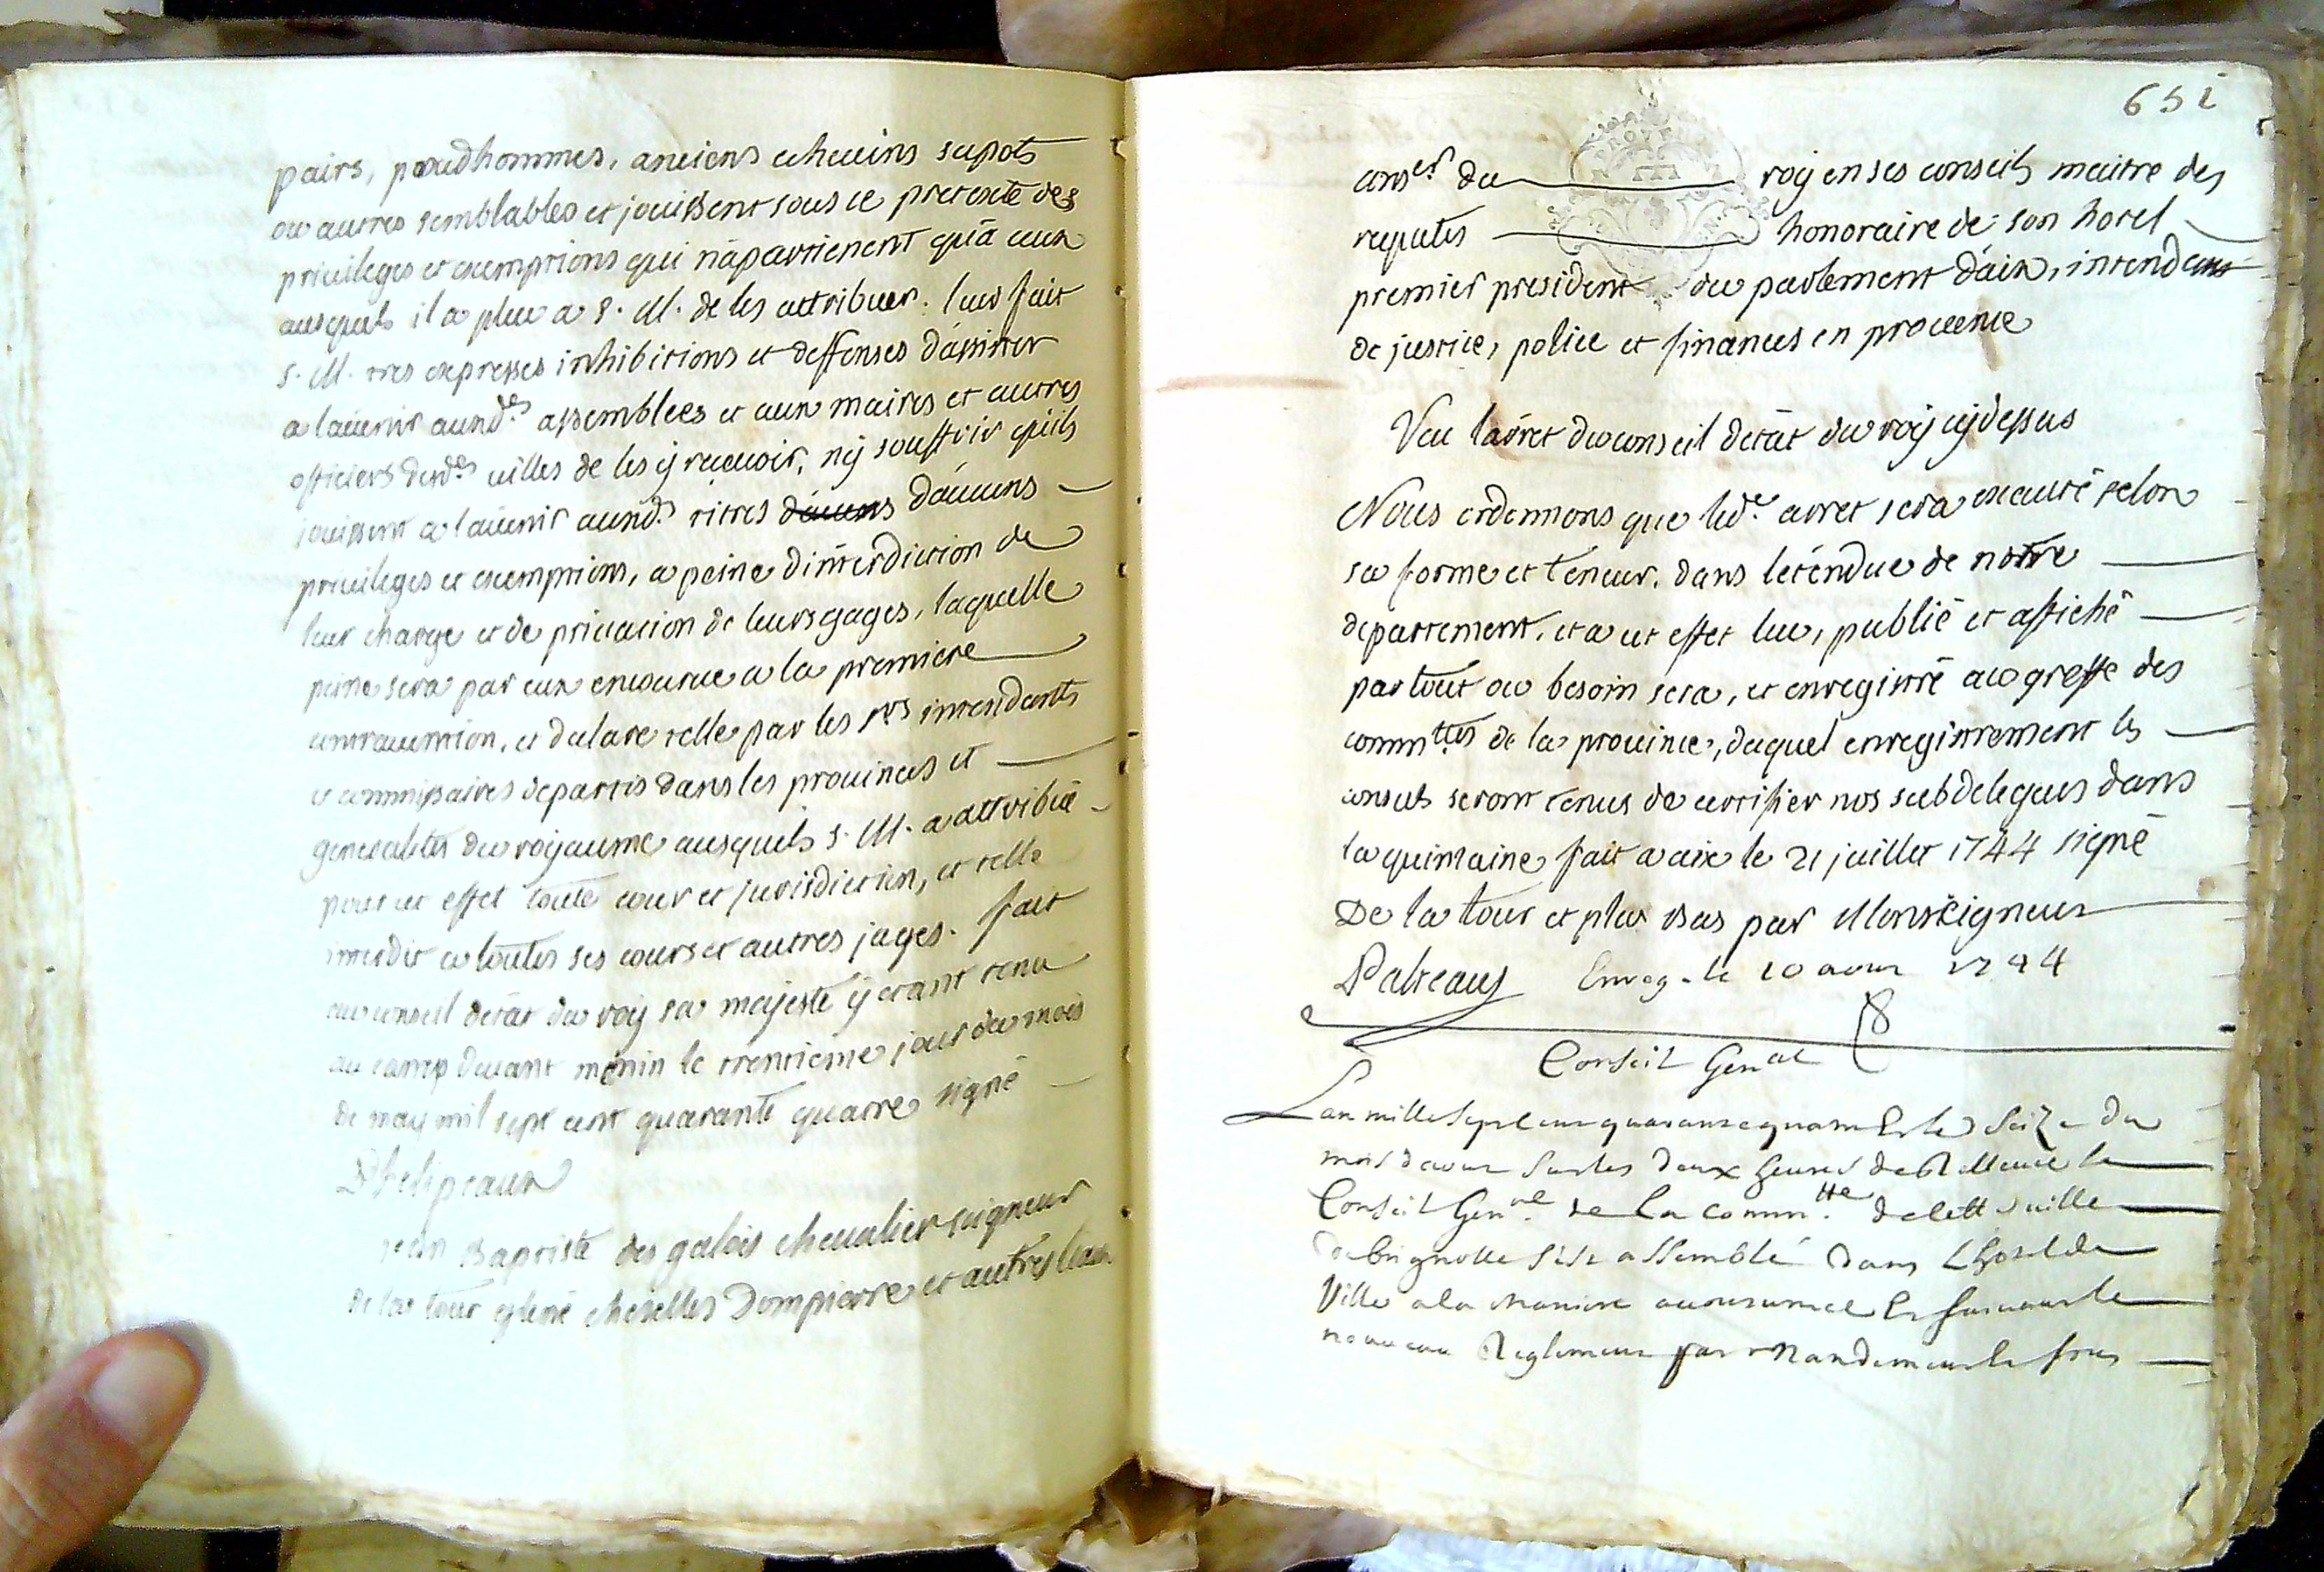 pairs, prudhommes, anciens echevins supots
ou autres semblables et jouissent sous ce pretexte des
privileges et exemptions qui nápartienent quá ceux
ausquels il a pleu a S. M. de les attribuer. leur fait
S. M. tres expresses inhibitions et deffenses d'assister
a lávenir auxd.es assemblées et aux maires et autres
officiers desd.es villes de les ÿ recevoir, nÿ souffrir quils
jouissent a lávenir auxd. titres dáucuns dáucuns
privileges et exemptions, a peine dinterdiction de
leur charge et de privation de leurs gages, laquelle
peine sera par eux encourue a la premiere
contravention, et declarée telle par les srs intendants
et commissaires departis dans les provinces et
generalités du royaume ausquels S. M. a attribué
pour cet effet toute cour et jurisdiction, et telle
interdit a toutes ses cours et autres juges. fait
au conseil détat du roÿ sa majesté ÿ etant tenu
au camp devant menin le trentieme jour du mois
de may mil sept cent quarante quatre signé
Phelipeaux
jean Baptiste des galois chevalier seigneur
de la tour glené chezelles Dompierre et autres lieux
651
cons.er du roÿ en ses conseils maitre des
requetes honoraire de son hotel
premier president du parlement dáix, intendant
de justice, police et finances en provence
Veu lárret du conseil détat du roÿ cÿ dessus
Nous ordonnons que led.t arret sera executé selon
sa forme et teneur. dans léténdue de notre
departement. et a cet effet lu, publié et affiché
partout ou besoin sera, et enregistré au greffe des
comm.ttés de la province, duquel enregistrement les
consuls seront tenus de certifier nos subdelegués dans
la quinzaine fait a aix le 21 juillet 1744 signé
De la tour et plus bas par Monseigneur
Enreg. le 10 aout 1744
Conseil Gen.al
Lan mille sept cens quarante quatre et le seize du
mois daout sur les deux heures de rellevée le
Conseil Gen.al de la comm.tté de cette ville
de brignolle sest assemblé dans lhostel de
Ville a la maniere accoutumée et suivant le
nouveau Reglement par mandement le fres